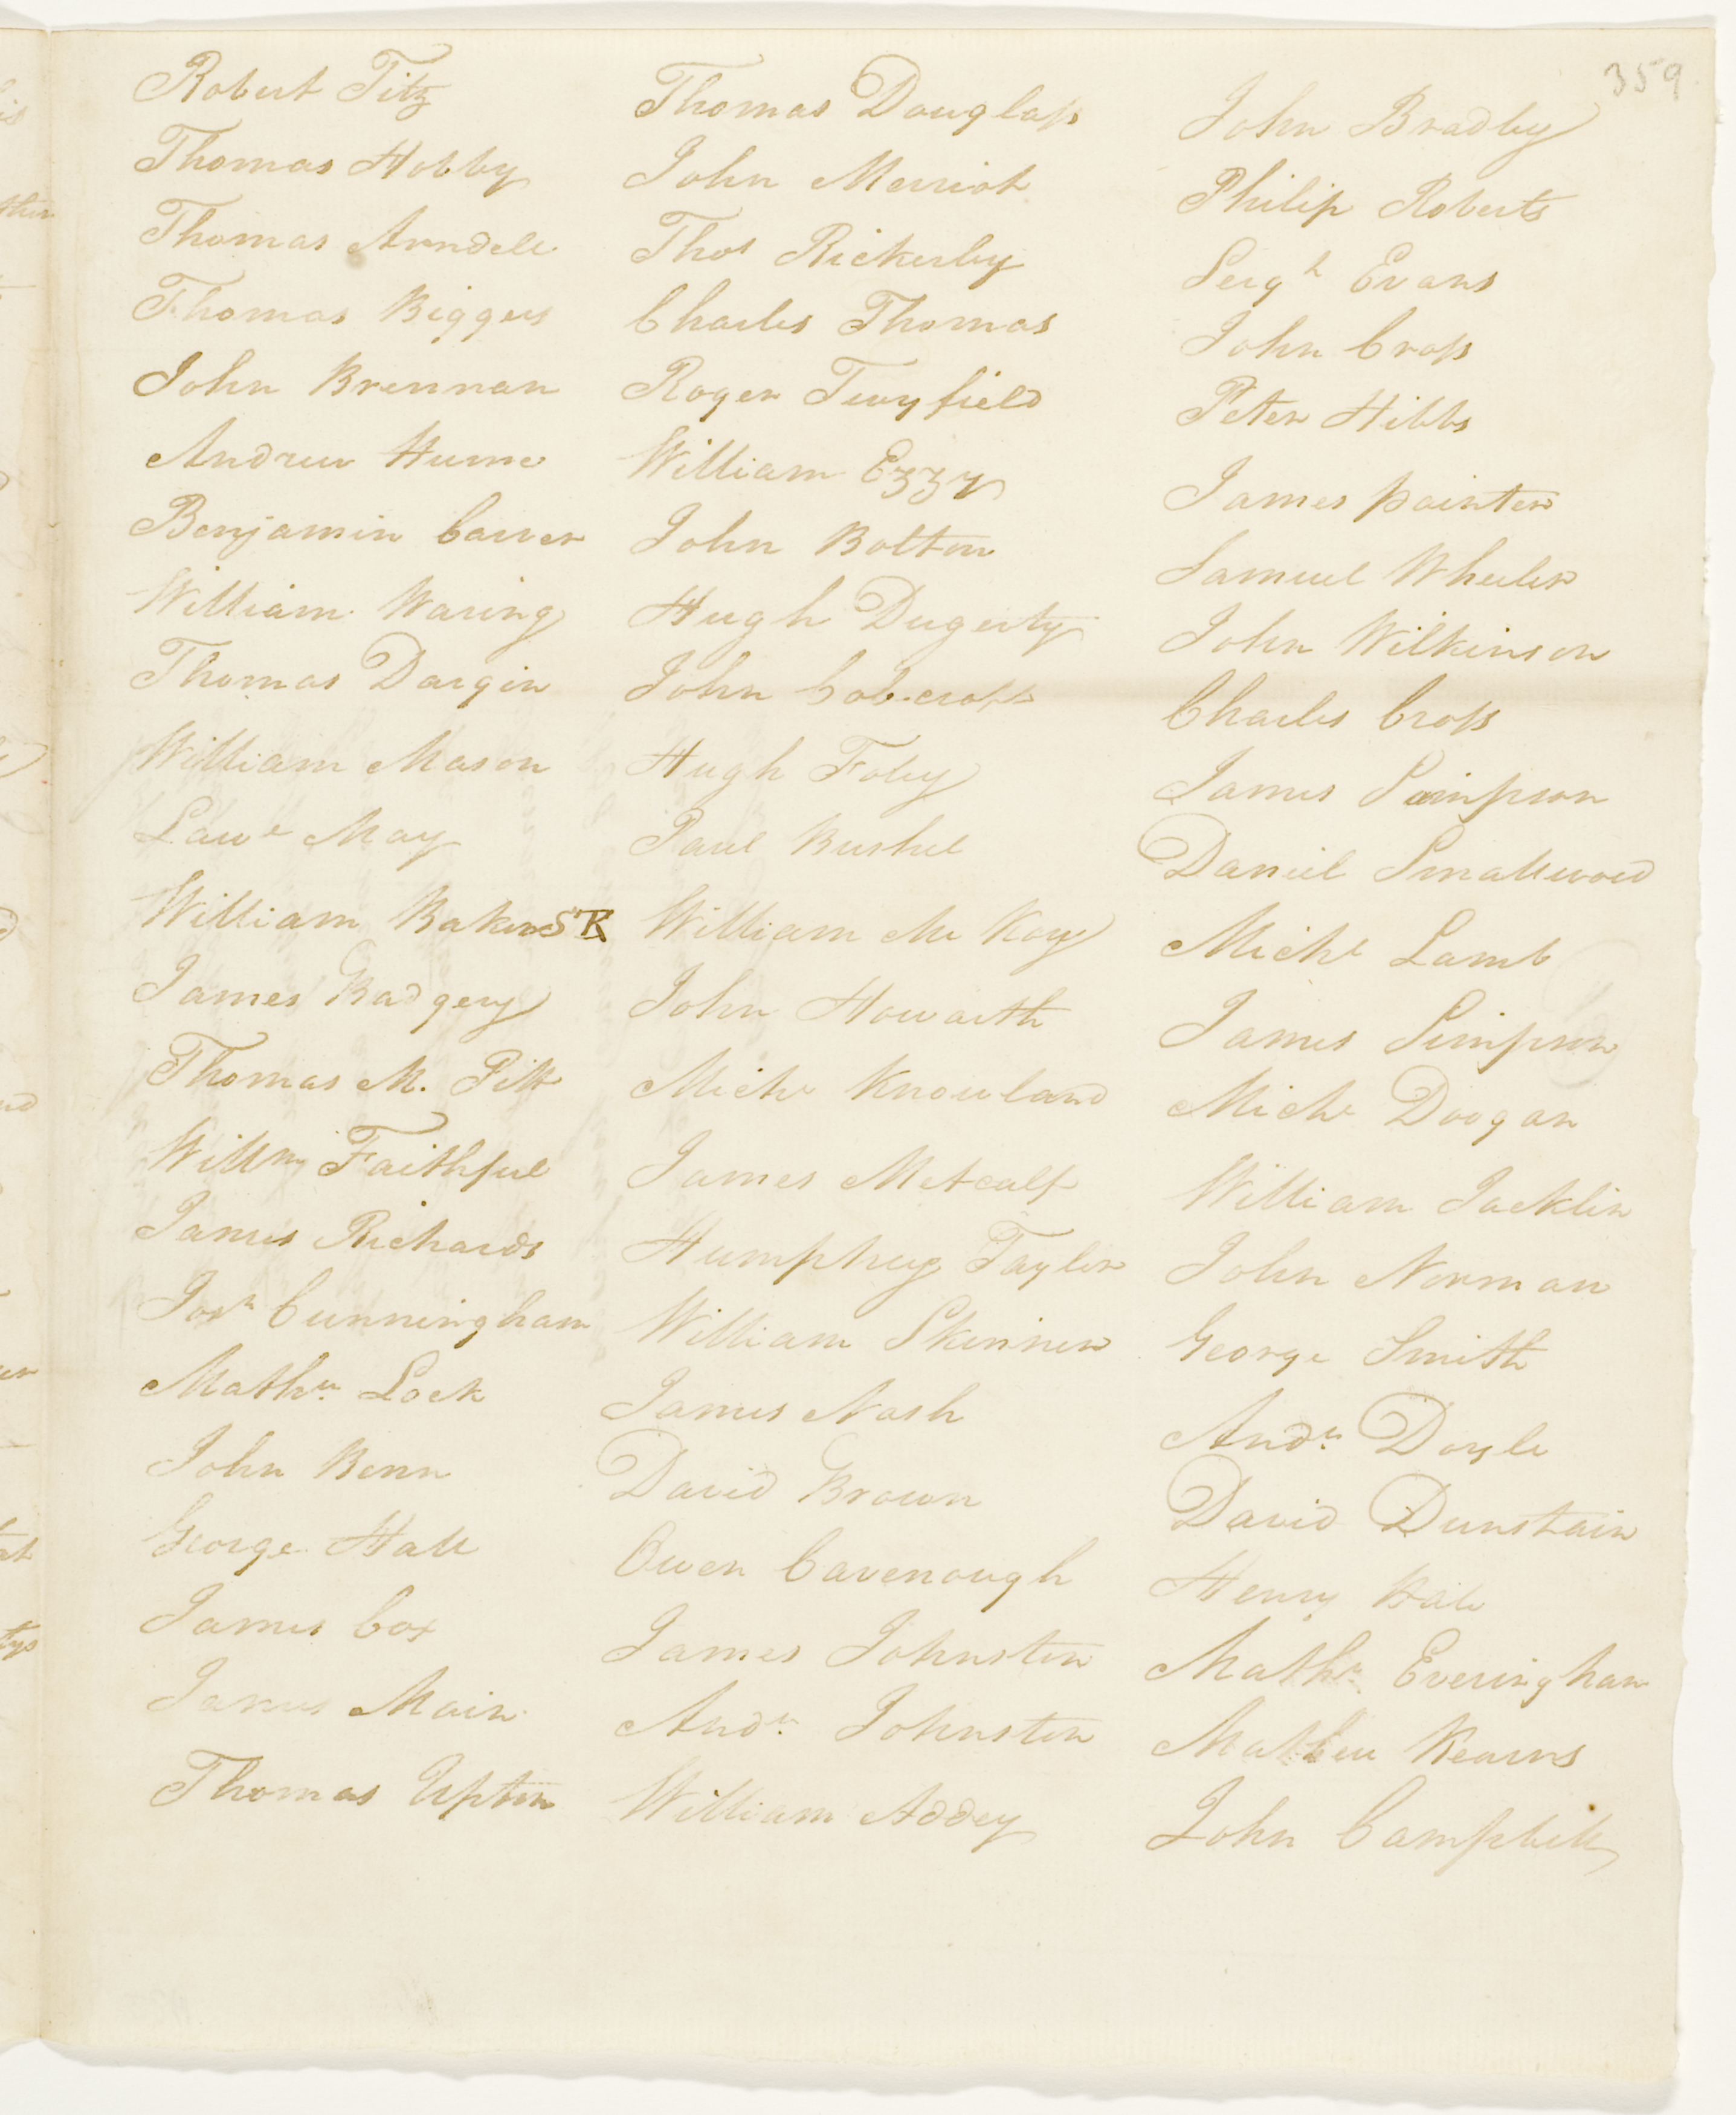 359
Robert Fitz
Thomas Hobby
Thomas Arndell
Thomas Biggers
John Brennan
Andrew Hume
Benjamin Carver
William Waring
Thomas Dargin
William Mason
Lawe May
William Baker SK
James Badgery
Thomas M. Pitt
Willm Faithful
James Richards
Josh Cunningham
Mathw. Lock
John Benn
George Hall
James Cox
James Main
Thomas Upton
Thomas Douglass
John Merriot
Thos Rickerby
Charles Thomas
Roger Twyfield
William Ezzy
John Bolton
Hugh Dugerty
John Cobcroft
Hugh Foley
Paul Bushel
William Mc Kay
John Howarth
Michl Knowland
James Metcalf
Humphrey Taylor
William Skinner
James Nash
David Brown
Owen Cavenough
James Johnston
Andw Johnston
William Addey
John Bradby
Philip Roberts
Sergt Evans
John Cross
Peter Hibbs
James painter
Samuel Wheeler
John Wilkinson
Charles Cross
James Sampson
Daniel Smallwood
Michl Lamb
James Simpson
Michl Doogan
William Jacklin
John Norman
George Smith
Andw. Doyle
David Dunstain
Henry Bale
Mathw. Everingham
Mathew Kearns
John Campbell